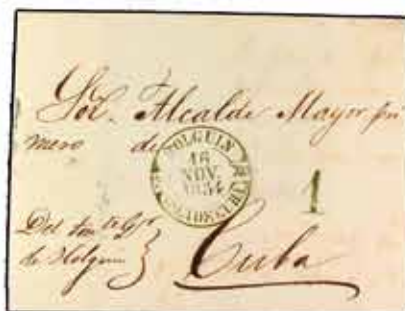 Sor. Alcalde Mayor pri
mero de
HOLGUIN
16
NOV.
1854
ISLA DE CUBA
1
Del Ten.te G.r
de Holguin
Cuba